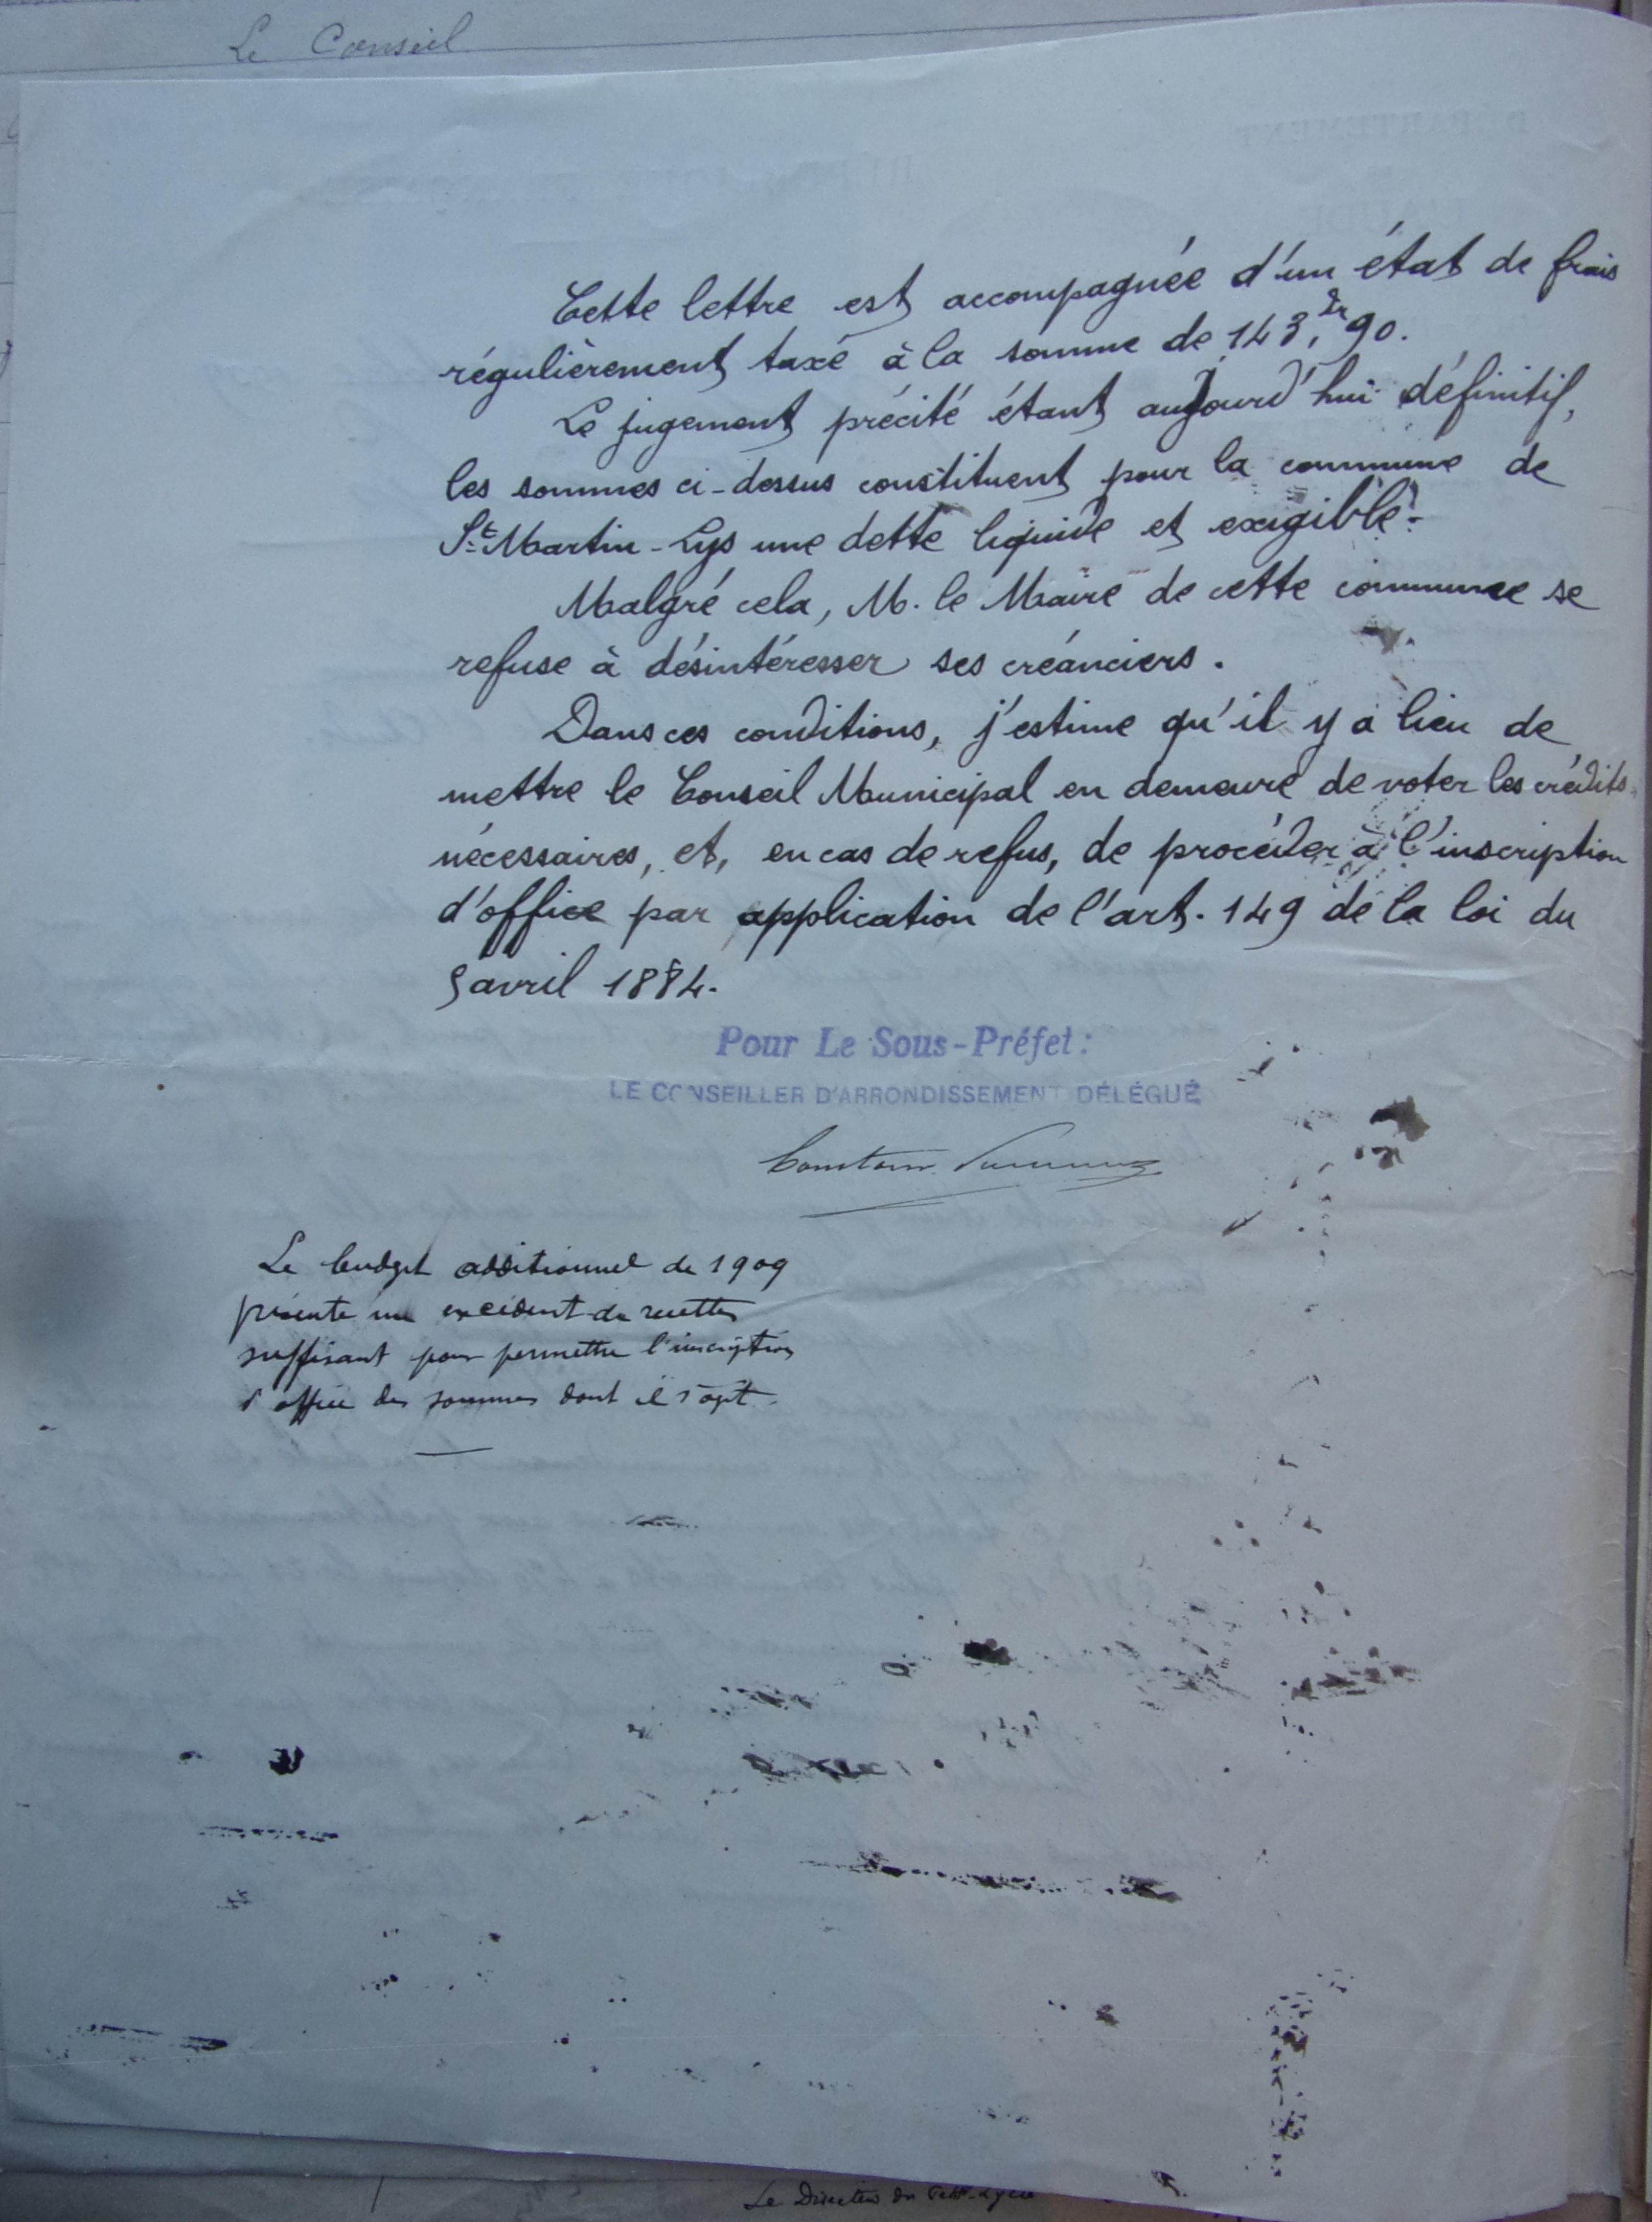 Le Conseil
Cette lettre est accompagnée d'un état de frais
régulièrement taxé à la somme de 143,fr 90.
Le jugement précité étant aujourd'hui définitif,
les sommes ci-dessus constituent pour la commune de
St Martin-Lys une dette liquide et exigible.
Malgré cela, M. le Maire de cette commune se
refuse à désintéresser ses créanciers.
Dans ces conditions, j'estime qu'il y a lieu de
mettre le Conseil Municipal en demeure de voter les crédits
nécessaires, et, en cas de refus, de procéder à l'inscription
d'office par application de l'art. 149 de la loi du
5 avril 1884.
Pour Le Sous-Préfet:
LE CONSEILLER D'ARRONDISSEMENT DÉLÉGUÉ
Le budget additionnel de 1909
présente un excédent de recettes
suffisant pour permettre l'inscription
d'office des sommes dont il s'agit.
Le Directeur du Petit-Lycée